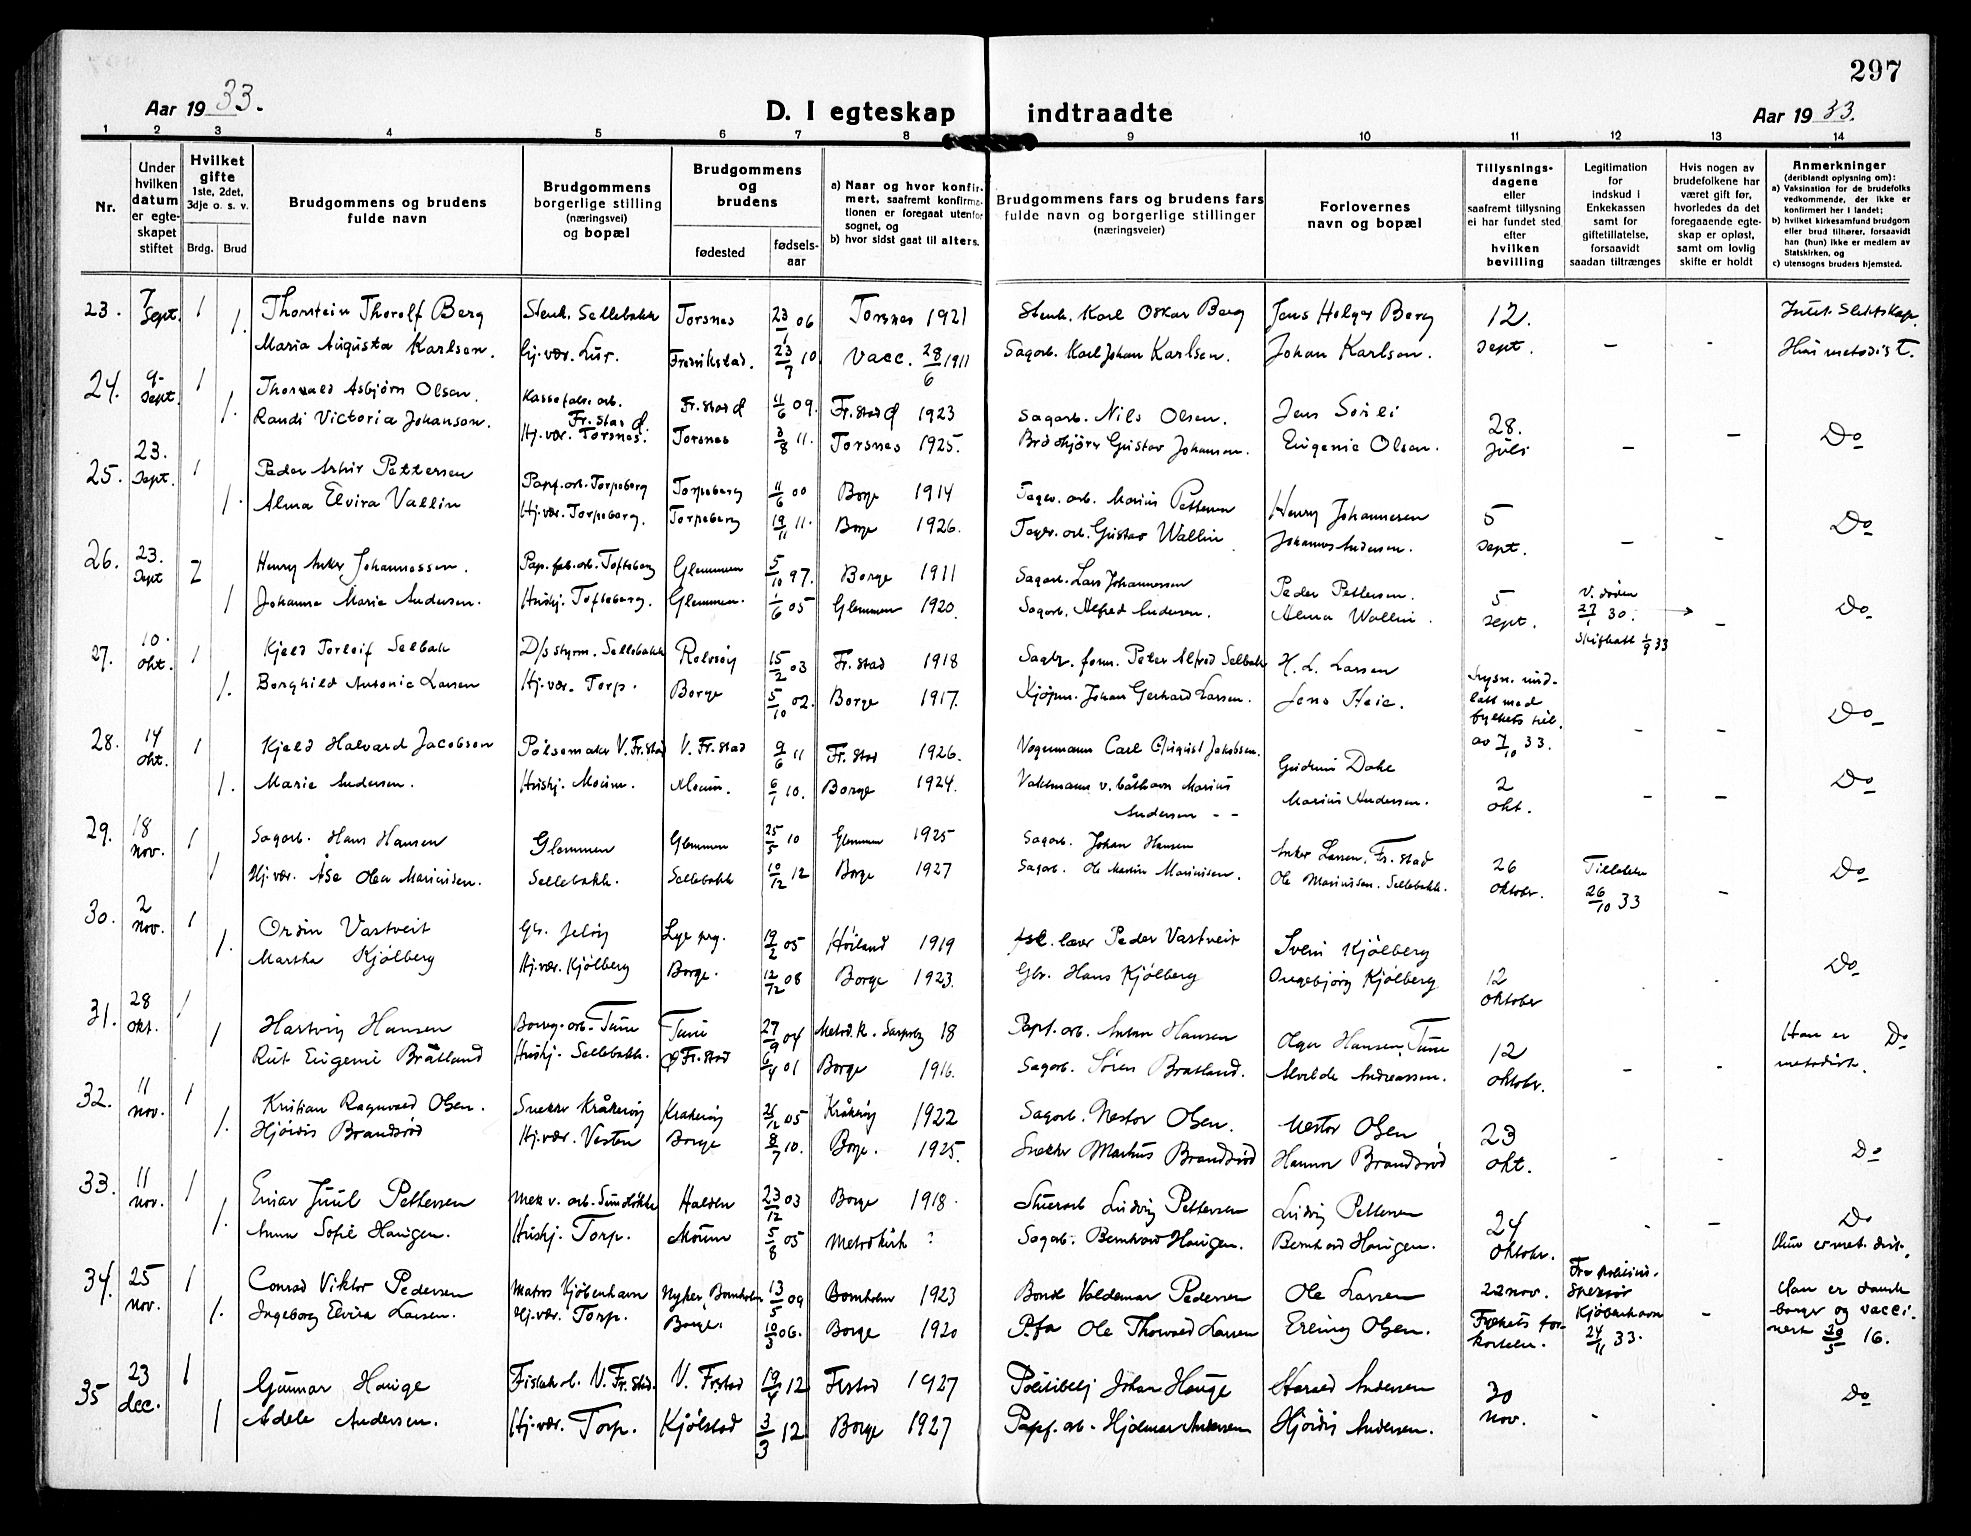 297
Aar 1933.
D. I egteskap indtraadte
Aar 1933.
1 2 3 4 5 6 7 8 9 10 11 12 13 14
Nr.
Under hvilken datum er egteskapet stiftet
Hvilket gifte 1ste, 2det, 3dje o. s. v.
Brdg. Brud
Brudgommens og brudens fulde navn
Brudgommens borgerlige stilling (næringsvei) og bopæl
Brudgommens og brudens
fødested
fødselsaar
a) Naar og hvor konfirmert, saafremt konfirmationen er foregaat utenfor sognet, og
b) hvor sidst gaat til alters.
Brudgommens fars og brudens fars fulde navn og borgerlige stillinger (næringsveier)
Forlovernes navn og bopæl
Tillysningsdagene eller saafremt tillysning ei har fundet sted efter hvilken bevilling
Legitimation for indskud i Enkekassen samt for giftetillatelse, forsaavidt saadan tiltrænges
Hvis nogen av brudefolkene har været gift før, hvorledes da det foregaaende egteskap er opløst, samt om lovlig skifte er holdt
Anmerkninger (deriblandt oplysning om):
a) Vaksination for de brudefolks vedkommende, der ikke er konfirmert her i landet;
b) hvilket kirkesamfund brudgom eller brud tilhører, forsaavidt han (hun) ikke er medlem av Statskirken, og
c) utensogns bruders hjemsted.
23. 7 Sept. 1 Thorstein Thorolf Berg Stenh. Sellebakk Torsnes 23/1 06 Torsnes 1921 Stenh. Karl Oskar Berg Jens Holger Berg 12. Sept. - - Intet Slektskap.
1. Maria Augusta Karlsen. Hj.vær. Lur. Fredrikstad. 23/7 10 Vacc. 28/6 1911 Sagarb. Karl Johan Karlsen. Johan Karlsen. Hun metodist.
24. 9 Sept. 1 Thorvald Asbjørn Olsen. Kassefabr. arb. Fr.stad Fr.stad 11/6 09. Fr.stad 1923 Sagarb. Nils Olsen. Jens Sørli 28. Juli - - Do
1. Randi Victoria Johanson. Hj.vær. Torsnes. Torsnes 3/8 11. Torsnes 1925. Gustav Johansen. Eugenie Olsen.
25. 23. Sept. 1 Peder Artur Pettersen Papf.arb. Torpeberg Torpeberg 11/6 00 Borge 1914 Marius Pettersen Henry Johannesen 5 Sept. - - Do
1. Alma Elvira Vallin Hj.vær. Torpeberg. Torpeberg 19/11 11. Borge 1926. Gustav Wallin Johannes Andersen.
26. 23. Sept 2 Henry Anker Johannessen. Pap.fab.arb. Tofteberg Glemmen 5/10 97. Borge 1911 Sagarb. Lars Johannessen Peder Pettersen. 5 Sept. V. døden 27/1 30. Skifteatt 1/9 33 - Do
1 Johanne Marie Andersen. Hushj. Tofteberg. Glemmen. 1/6 05 Glemmen 1920. Sagarb. Alfred Andersen. Alma Wallin.
27. 10. Okt. 1 Kjeld Torleif Selbak D/s styrm. Sellebakk Rolvsøy 15/2 03 Fr.stad 1918 Sagbr. form. Peter Alfred Selbak H. L. Larsen Lysn. undlatt med fylkets till. av 7/10 33. - - Do
1. Borghild Antonie Larsen Hj.vær. Torp. Borge 5/10 02. Borge 1917. Kjøpm. Johan Gerhard Larsen. Jens Heie.
28. 14 Okt. 1 Kjeld Halvard Jacobsen Pølsemaker V. Fr.stad V. Fr.stad 9/6 11 Fr.stad 1926. Vognmann Carl Jakobsen. Gudrun Dahe 2 Okt. - - Do
1. Marie Andersen. Hushj. Moum. Moum. 6/1 10. Borge 1924. Vaktmann v. båthavn Marius Andersen - - Marius Andersen.
29. 18 Nov. 1 Sagarb. Hans Hansen Glemmen Glemmen 25/5 10 Glemmen 1925 Sagarb. Johan Hansen Anker Larsen. Fr.stad 26 Oktober. 26/10 33 - Do
1 Hj.vær. Åse Olea Mariussen. Sellebakk. Sellebakk 10/12 12 Borge 1927 Sagarb. Ole Martin Mariussen. Ole Mariussen. Sellebakk.
30. 2 Nov. 1 Ordin Vastveit Gb. Jeløy Lye prg. 19/2 05 Høiland 1919 Peder Vastveit Svein Kjölberg 12 Oktober - - Do
1. Martha Kjölberg Hj.vær. Kjölberg Borge. 12/12 08 Borge 1923. Gbr. Hans Kjölberg Ingebjörg Kjölberg
31. 28 Okt. 1 Hartvig Hansen Borreg. arb. Tune Tune 27/9 04 Metod.k. Sarpsbg 18 Papf. arb. Anton Hansen Olger Hansen, Tune 12 Oktober. - - Han er metodist. Do
1 Rut Eugenie Bråtland Hushj. Sellebakk. Ø Fr.stad 6/4 01 Borge 1916. Sagarb. Sören Bratland. Alvilde Andreassen.
32. 11 Nov. 1 Kristian Ragnvald Olsen. Snekker Kråkerøy Krakerøy 21/12 05 Kråkerøy 1922 Sagarb. Nestor Olsen. Nestor Olsen 23 Okt. - - Do
1. Hjördis Brandsröd Hj.vær. Vesten Borge 8/7 10. Borge. 1925. Snekker Markus Brandsröd Hannor Brandsröd
33. 11 Nov. 1 Einar Juul Pettersen Mek v. arb. Sundløkka Halden 23/12 03 Borge 1918. Stuerarb Ludvig Pettersen Ludvig Pettersen 24 Oktober. - - Do
1. Anna Sofie Haugen. Hushj. Torp. Moum 5/8 05 Metodkirk ? Sagarb. Bernhard Haugen. Bernhard Haugen. Hun er met. dist.
34. 25 Nov. 1 Conrad Viktor Pedersen Matros Kjöbenhavn Nyker, Bornholm 13/5 09 Bornholm 1923 Bonde Valdemar Pedersen Ole Larsen 22 Nov. Fylkets forkortelse. Kjöbenhavn 24/11 33. - Han er dansk borger og vaccinert 20/5 16.
1. Ingeborg Elvira Larsen. Hj.vær. Torp. Borge. 10/3 06. Borge 1920 P.fa Ole Thorvald Larsen Erling Olsen.
35 23 dec. 1 Gunnar Hauge Fiskeh. V. Fr.stad. V. Fr.stad 19/4 12 Fr.stad 1927 Politibetj Johan Hauge Harald Andersen 30 Nov. - - Do
1 Adele Andersen. Hj.vær. Torp. Kjölstad 3/3 12 Borge 1927 Papf. arb. Hjalmar Andersen Hjördis Andersen.